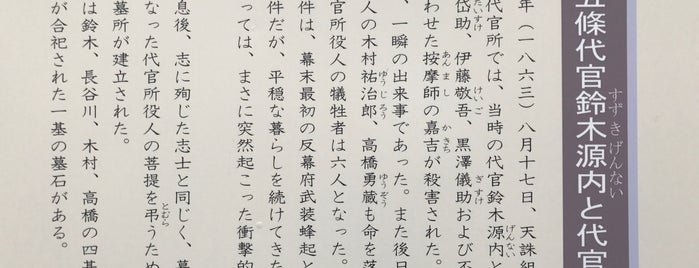 五條代官鈴木源内と代官
すずきげんない
年（一八六三）八月十七日、天誅組
代官所では、当時の代官鈴木源内と
げんない
岱助、伊藤敬吾、黒澤儀助および不
たいすけ けいご ぎすけ
わせた按摩師の嘉吉が殺害された。
あんまし かきち
、一瞬の出来事であった。また後日
人の木村祐治郎、高橋勇蔵も命を落
ゆうじろう ゆうぞう
官所役人の犠牲者は六人となった。
件は、幕末最初の反幕府武装蜂起と
件だが、平穏な暮らしを続けてきた
っては、まさに突然起こった衝撃的
息後、志に殉じた志士と同じく、幕
なった代官所役人の菩提を弔うため
とむら
墓所が建立された。
は鈴木、長谷川、木村、高橋の四基
が合祀された一基の墓石がある。